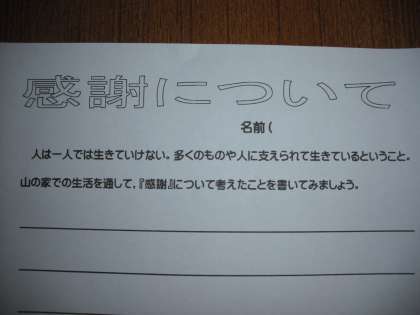 感謝について
名前(
人は一人では生きていけない。多くのものや人に支えられて生きているということ。
山の家での生活を通して、『感謝』について考えたことを書いてみましょう。